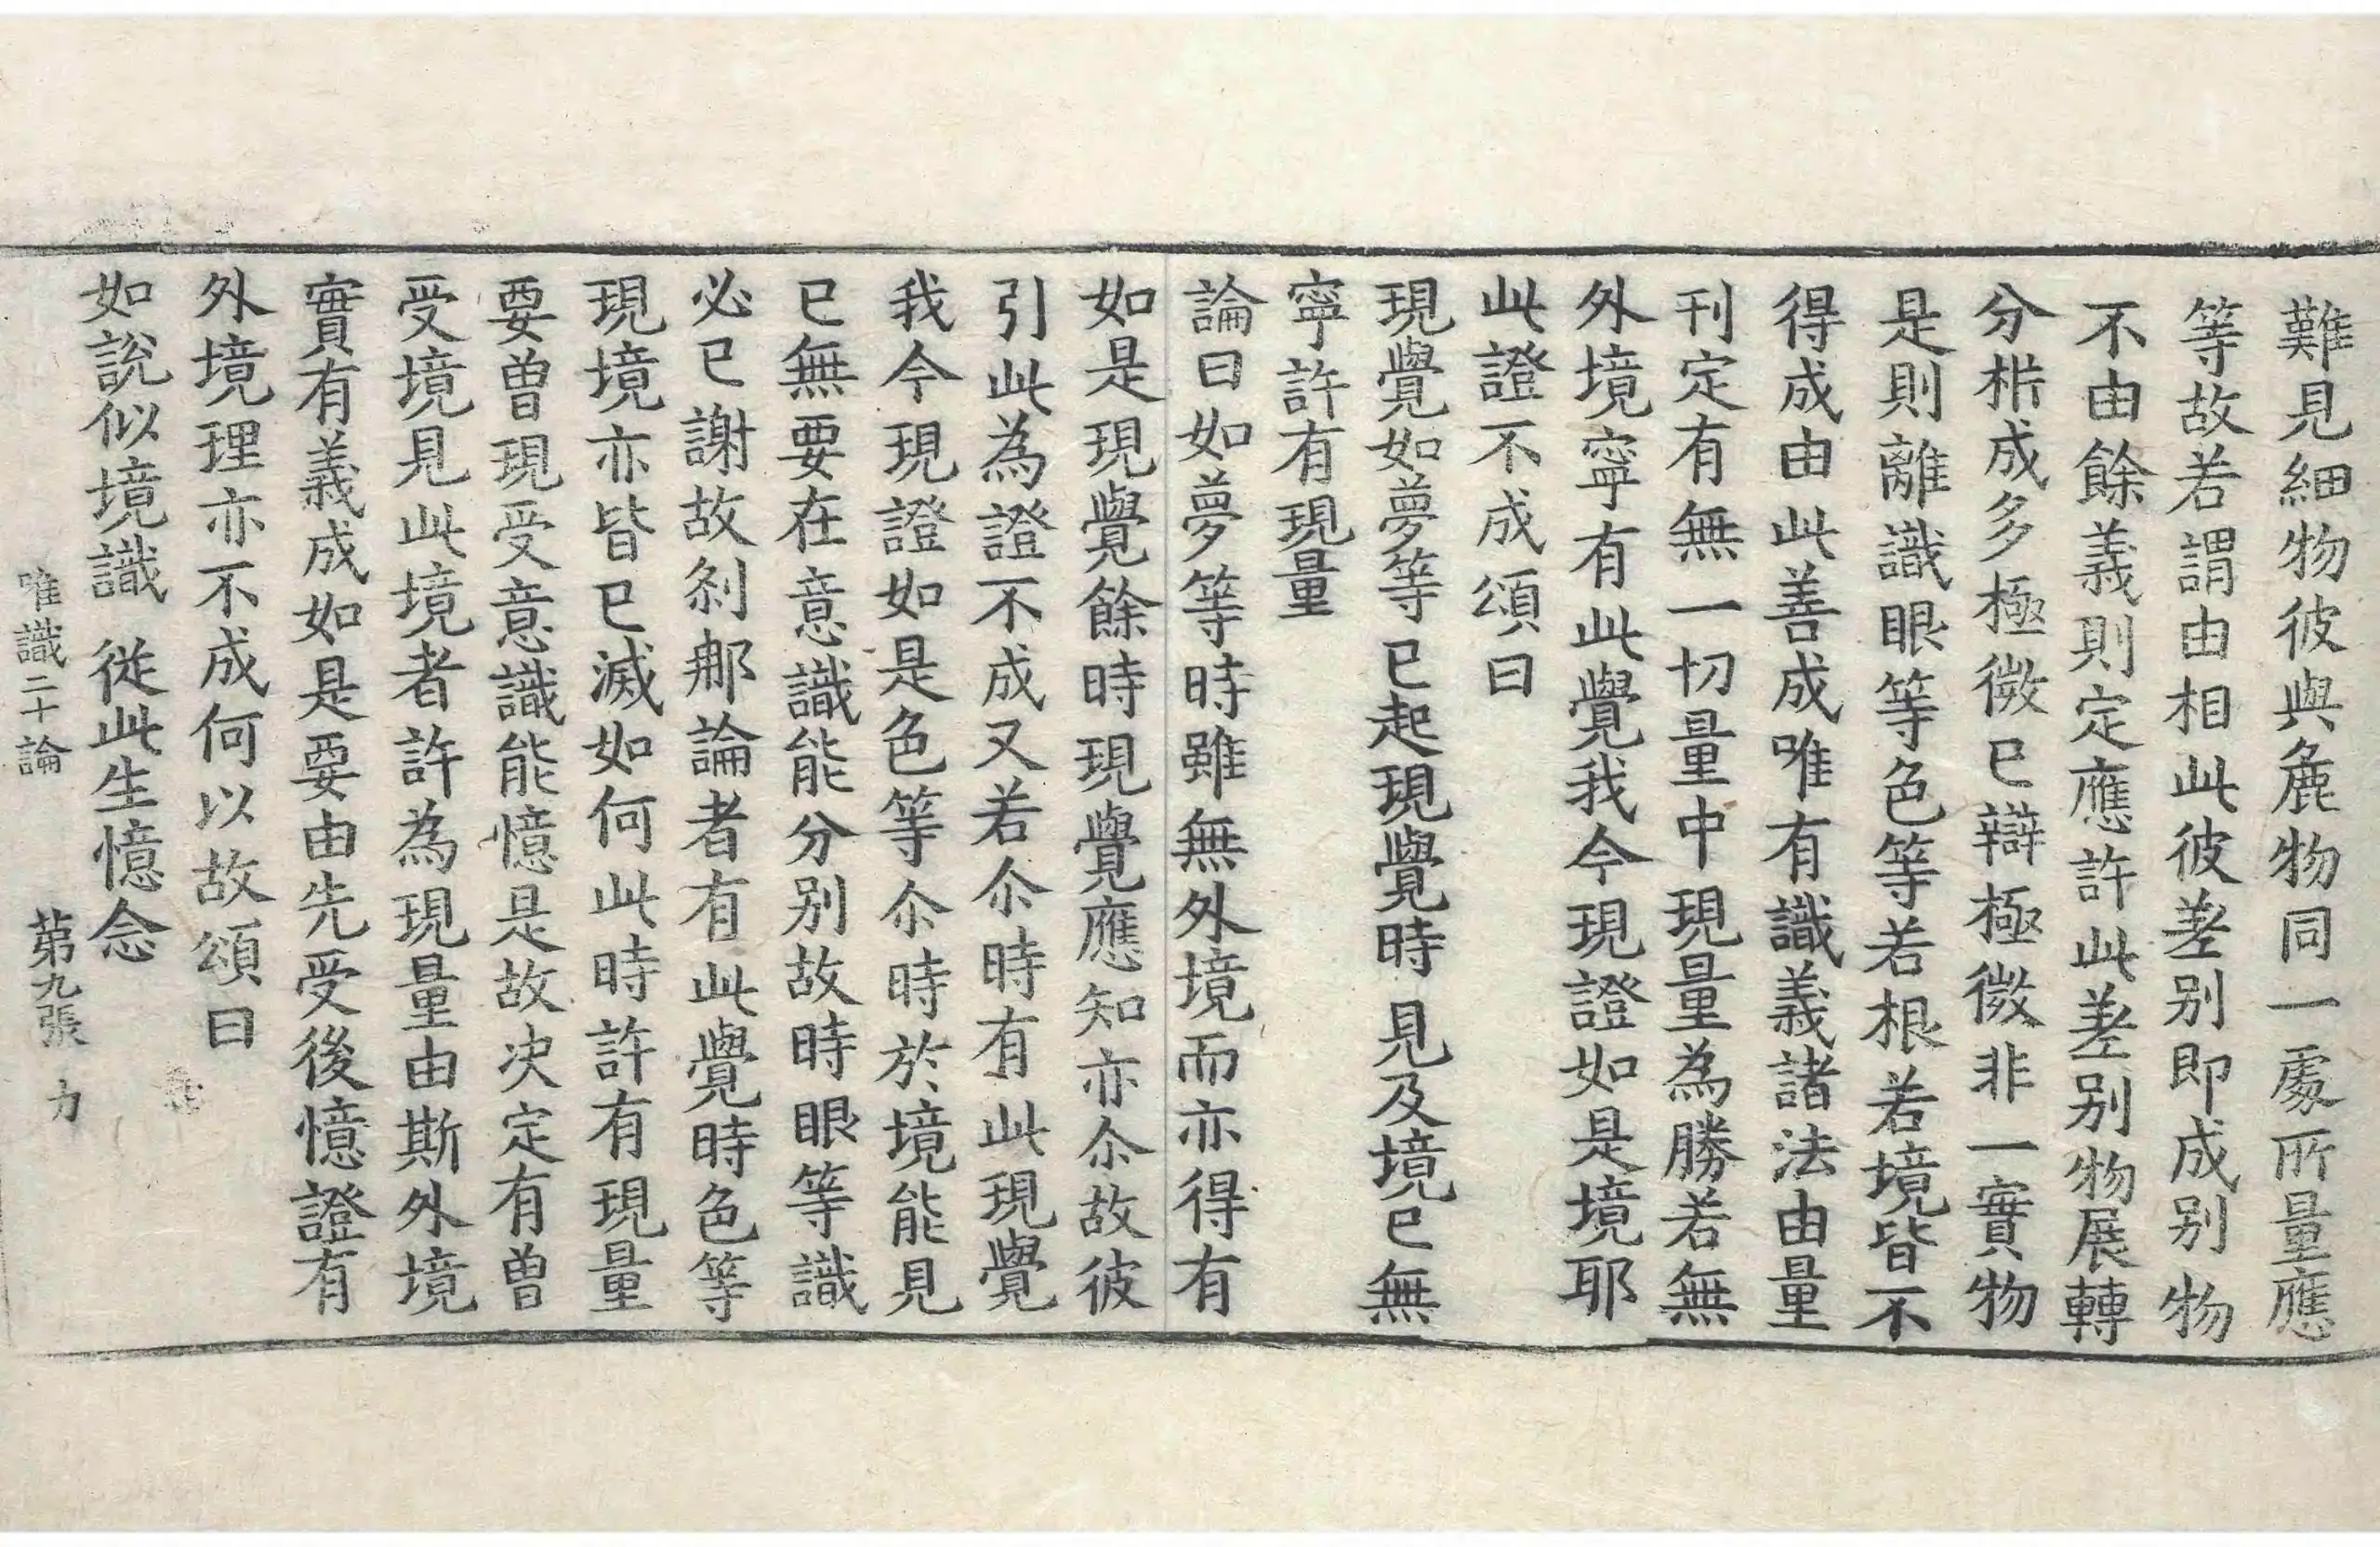 難見細物彼與麁物同一處所量應
等故若謂由相此彼差別即成別物
不由餘義則定應許此差別物展轉
分㭊成多極微已辯極微非一實物
是則離識眼等色等若根若境皆不
得成由此善成唯有識義諸法由量
刊定有無一切量中現量為勝若無
外境寧有此覺我今現證如是境耶
此證不成頌曰
現覺如夢等 已起現覺時 見及境已無
寧許有現量
論曰如夢等時雖無外境而亦得有
如是現覺餘時現覺應知亦尒故彼
引此為證不成又若尒時有此現覺
我今現證如是色等尒時於境能見
已無要在意識能分別故時眼等識
必已謝故剎那論者有此覺時色等
現境亦皆已滅如何此時許有現量
要曾現受意識能憶是故决定有曾
受境見此境者許為現量由斯外境
實有義成如是要由先受後憶證有
外境理亦不成何以故頌曰
如說似境識 從此生憶念
唯識二十論 第九張 力